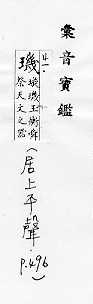 彙音寶鑑
璣
璇璣玉衡舜
祭天文之器
(居上平聲,
P.496)